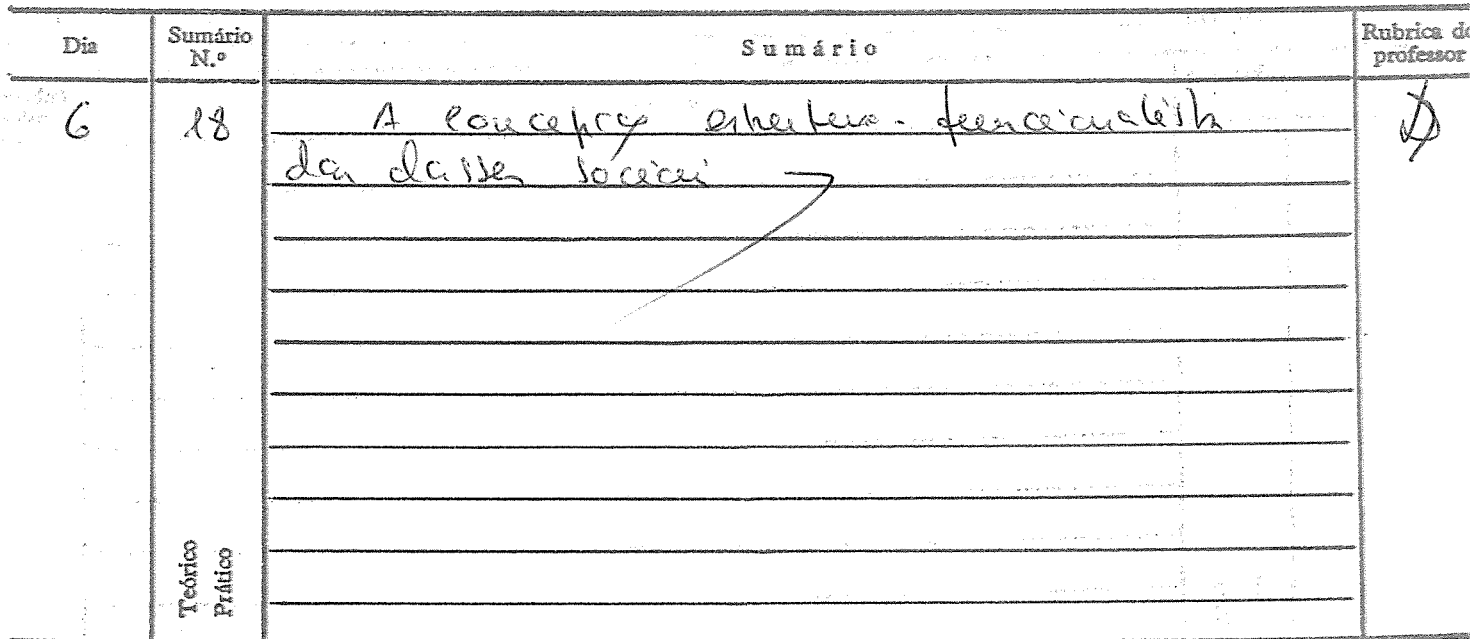 Dia
Sumário N.º
Sumário
Rubrica do professor
6
18
A concepção estruturo-funcionalista
das classes sociais
Teórico
Prático